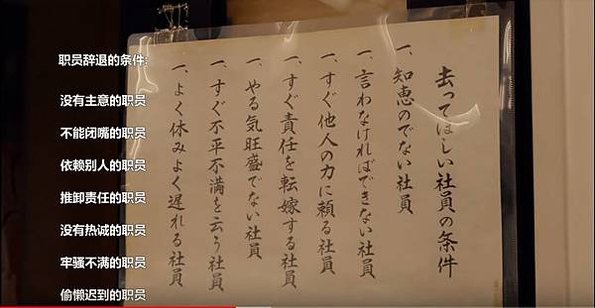 职员辞退的条件:
没有主意的职员
不能闭嘴的职员
依赖别人的职员
推卸责任的职员
没有热诚的职员
牢骚不满的职员
偷懒迟到的职员
去ってほしい社員の条件
一、知恵のでない社員
一、言わなければできない社員
一、すぐ他人の力に頼る社員
一、すぐ責任を転嫁する社員
一、やる気旺盛でない社員
一、すぐ不平不満を云う社員
一、よく休みよく遅れる社員